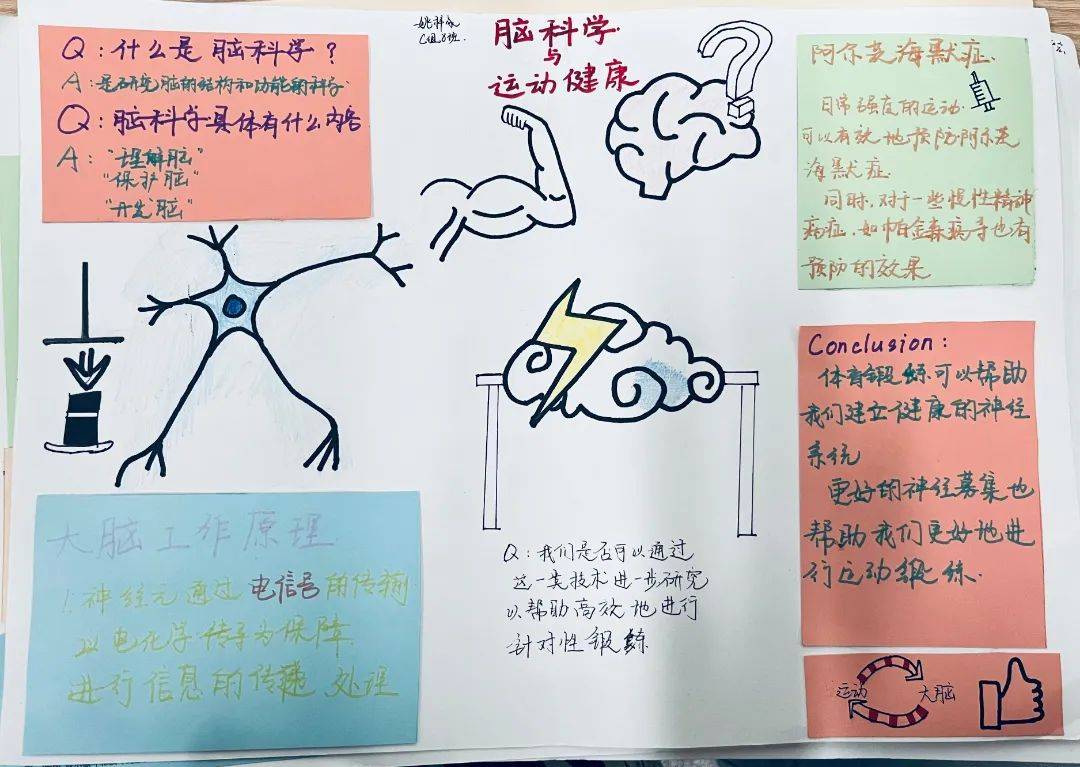 脑科学
与
运动健康
C组8班
Q：什么是脑科学？
A：是研究脑的结构和功能的科学
Q：脑科学具体有什么内容
A："理解脑"
"保护脑"
"开发脑"
大脑工作原理
！神经元通过电信号的传输
以电化学传导为保障
进行信息的传递 处理
Q：我们是否可以通过
这一类技术进一步研究
以帮助高效地进行
针对性锻鍊
阿尔茨海默症
日常强度的运动
可以有效地预防阿尔茨
海默症
同时，对于一些慢性精神
病症，如帕金森病等也有
预防的效果
Conclusion：
体育锻鍊可以帮助
我们建立健康的神经
系统
更好的神经募集也
帮助我们更好地进
行运动锻练.
运动 大脑